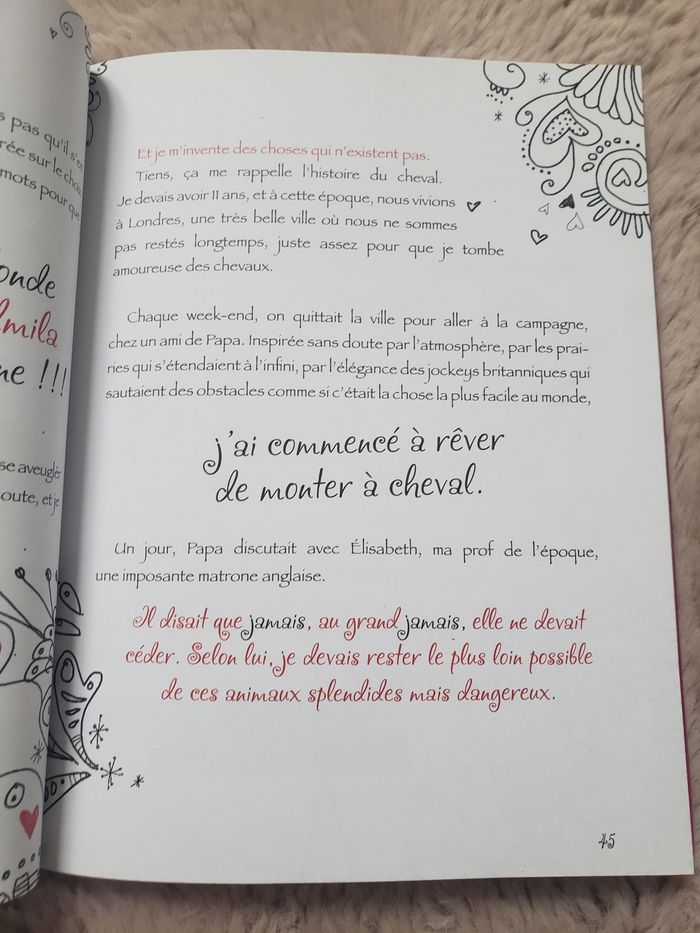 s pas qu'il s'e
rée sur le choc
mots pour que
onde
lmila
ne !!!
se aveuglé
oute, et je
Et je m'invente des choses qui n'existent pas.
Tiens, ça me rappelle l'histoire du cheval.
Je devais avoir 11 ans, et à cette époque, nous vivions
à Londres, une très belle ville où nous ne sommes
pas restés longtemps, juste assez pour que je tombe
amoureuse des chevaux.
Chaque week-end, on quittait la ville pour aller à la campagne,
chez un ami de Papa. Inspirée sans doute par l'atmosphère, par les prai-
ries qui s'étendaient à l'infini, par l'élégance des jockeys britanniques qui
sautaient des obstacles comme si c'était la chose la plus facile au monde,
j'ai commencé à rêver
de monter à cheval.
Un jour, Papa discutait avec Élisabeth, ma prof de l'époque,
une imposante matrone anglaise.
Il disait que jamais, au grand jamais, elle ne devait
céder. Selon lui, je devais rester le plus loin possible
de ces animaux splendides mais dangereux.
45